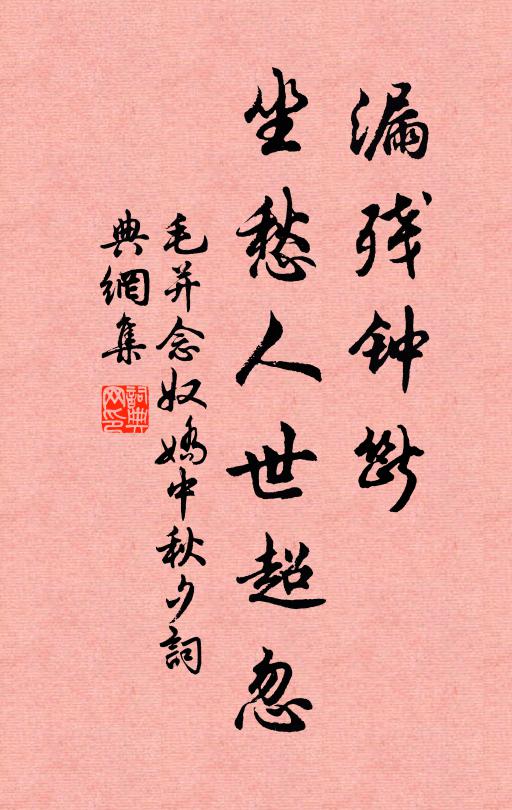 漏残钟断
坐愁人世超忽
毛并念奴娇中秋夕詞
典網集
詞典网印